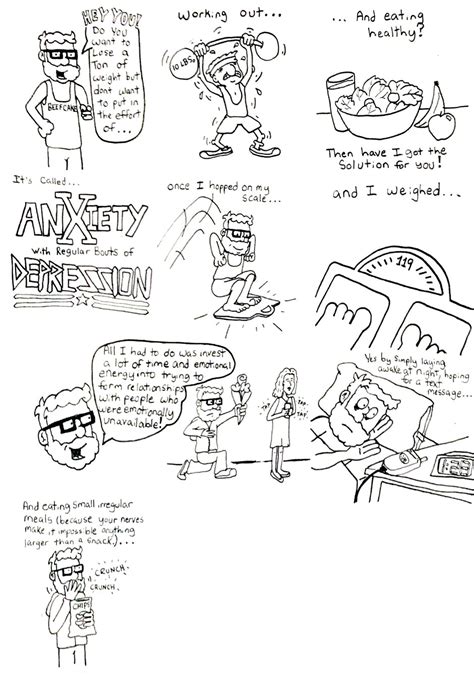 HEY YOU!
Do you
want to
Lose a
Ton of
weight but
dont want
to put in
the effort
of...
BEEFCAKE
Working out...
10 LBS.
... And eating
healthy?
Then have I got the
Solution for you!
It's Called...
ANXIETY
with Regular Bouts of
DEPRESSION
once I hopped on my
scale...
and I weighed...
119
All I had to do was invest
a lot of time and emotional
energy into trying to
form relationships
with people who
were emotionally
unavailable!
TAP
TAP
TAP
Yes by simply laying
awake at night, hoping
for a text
message...
And eating Small irregular
meals (because your nerves
make it impossible anything
larger than a snack)...
CRUNCH
CRUNCH
CHIPS